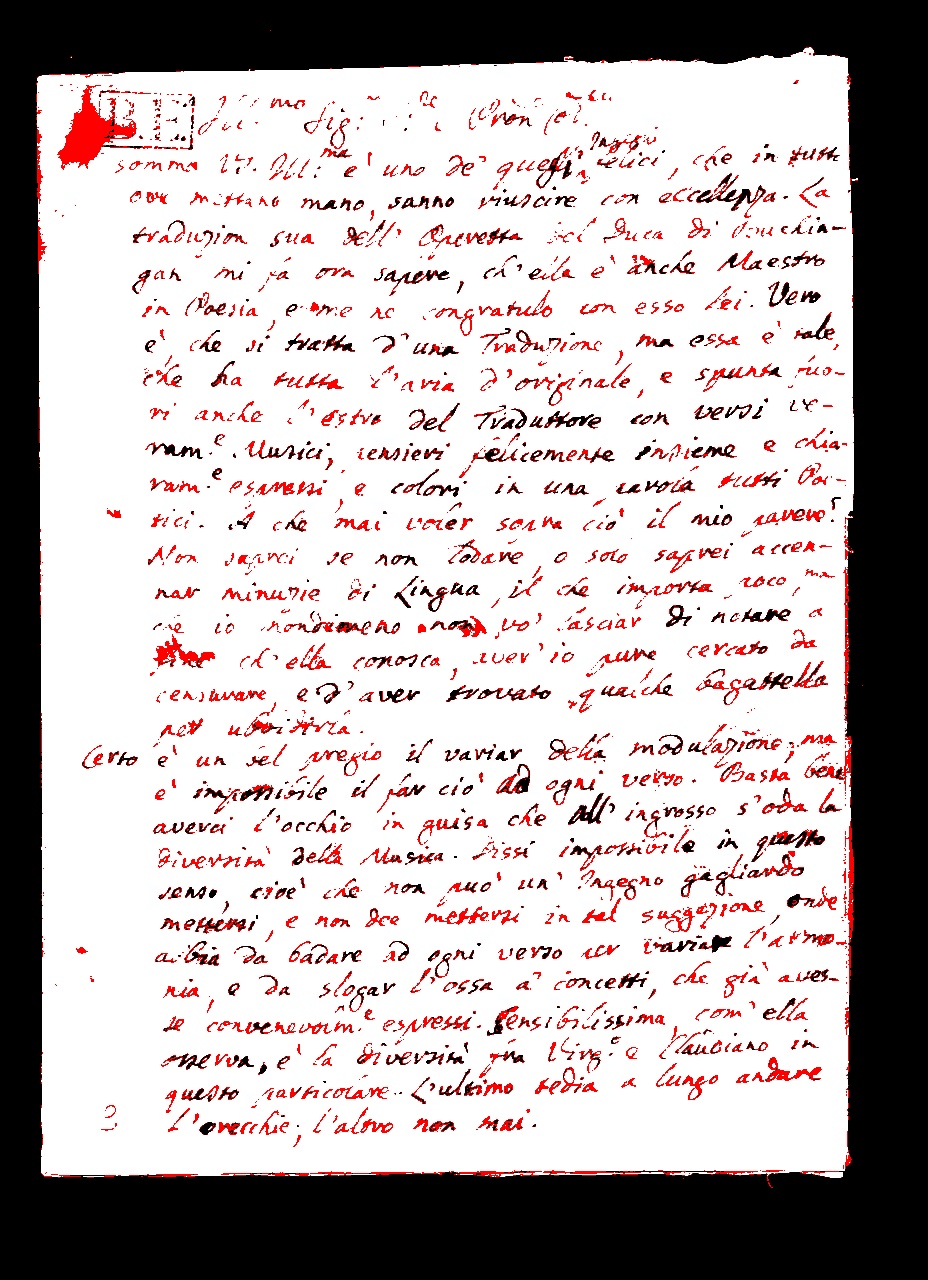 B.E.
Ill.mo Sig.r Pron Col.mo
somma V.S. Ill.ma è uno de' quegli Ingegni felici, che in tutto
ove mettano mano, sanno riuscire con eccellenza. La
traduzion sua dell' Operetta del Duca di Bouchin-
gan mi fà ora sapere, ch'ella è anche Maestro
in Poesia, e me ne congratulo con esso lei. Vero
è, che si tratta d'una Traduzione, ma essa è tale,
che ha tutta l'aria d'originale, e spunta fuo-
ri anche l'estro del Traduttore con versi ve-
ram.e Musici, pensieri felicemente insieme e chia-
ram.e espressi, e colori in una parola tutti Poe-
tici. A che mai voler sopra ciò il mio parere?
Non saprei se non lodare, o solo saprei accen-
nar minuzie di Lingua, il che importa poco, ma
che io nondimeno non vo' lasciar di notare a
fine ch'ella conosca, aver'io pure cercato da
censurare, e d'aver trovato qualche bagattella
per ubbidirla.
Certo è un bel pregio il variar della modulazione, ma
è impossibile il far ciò ad ogni verso. Basta bene
averci l'occhio in guisa che all'ingrosso s'oda la
diversità della Musica. Dissi impossibile in questo
senso, cioè che non può un'Ingegno gagliardo
mettersi, e non dee mettersi in tal suggezione, onde
abbia da badare ad ogni verso per variare l'armo-
nia, e da slogar l'ossa a' concetti, che già aves-
se convenevolm.e espressi. Sensibilissima, com'ella
osserva, è la diversità fra Virg.o e Claudiano in
questo particolare. L'ultimo tedia a lungo andare
l'orecchie; l'altro non mai.